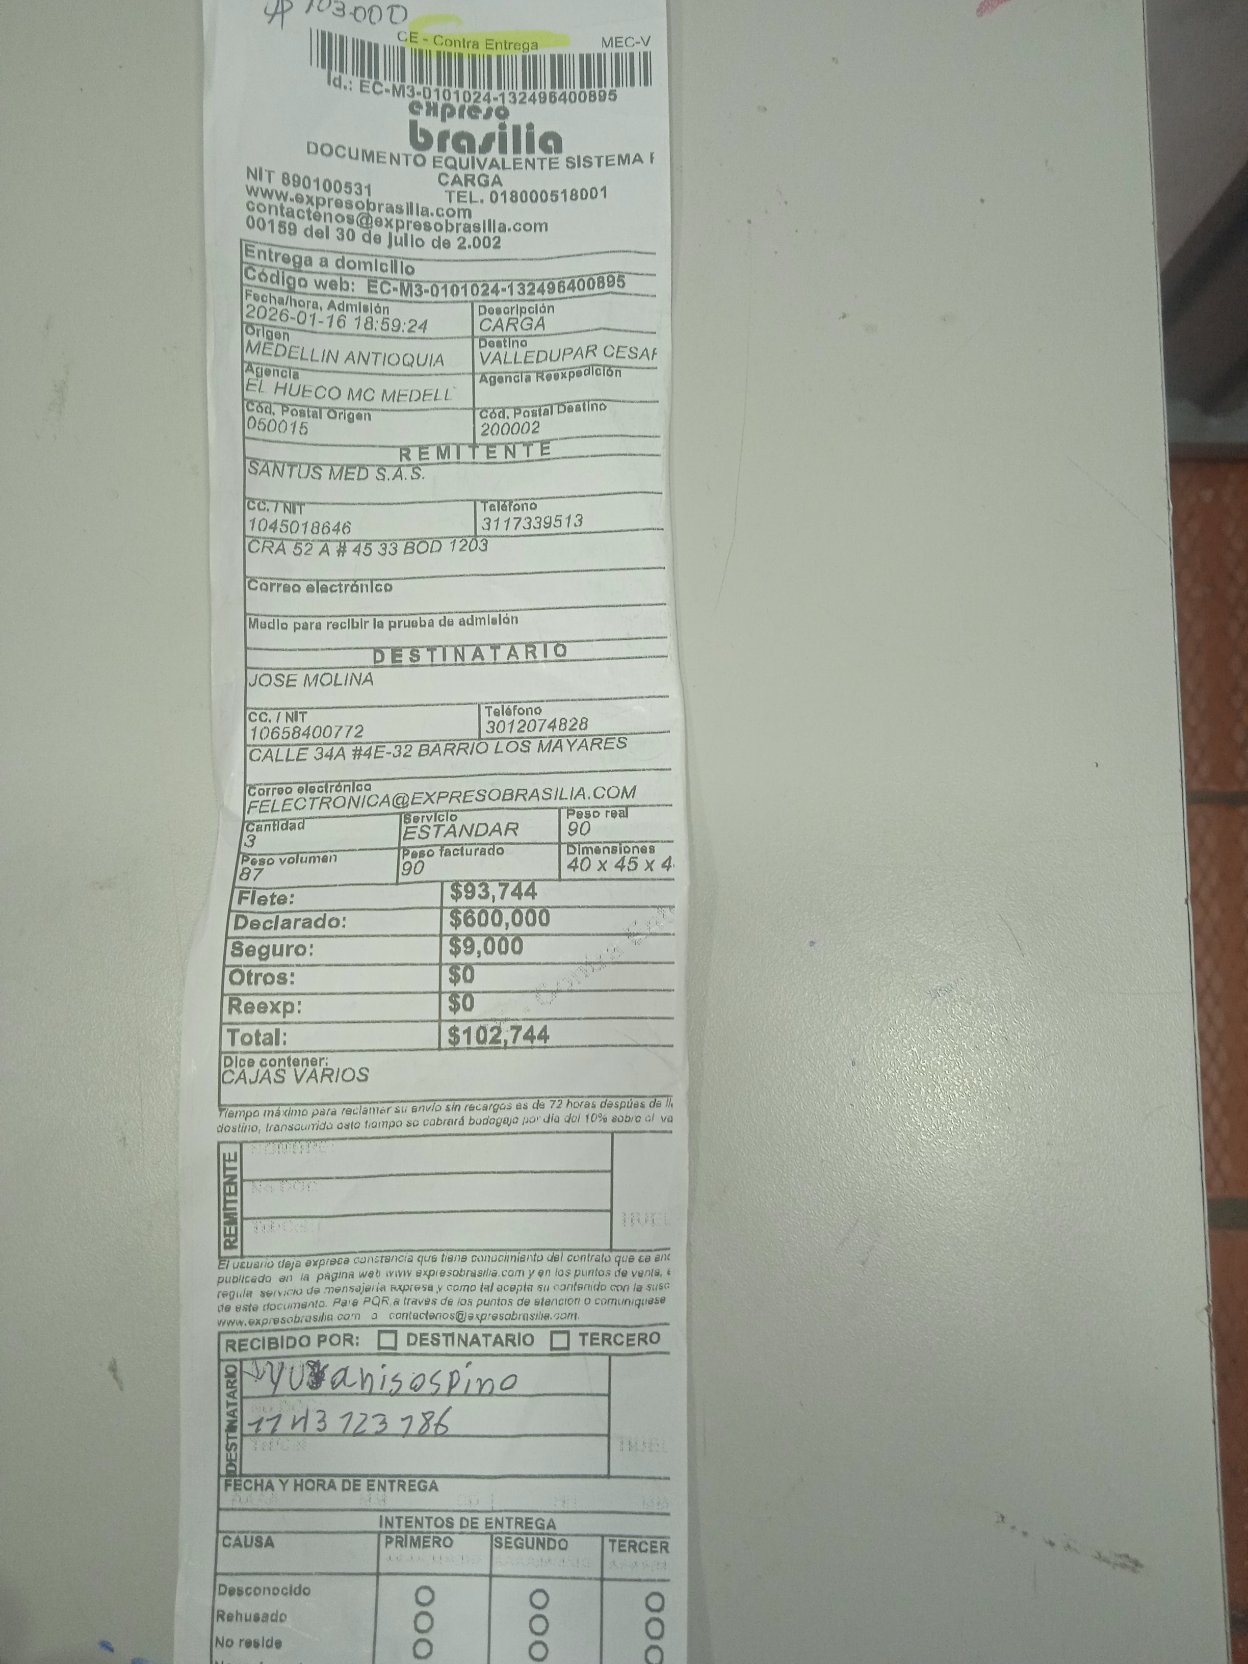 103.000
CE - Contra Entrega MEC-V
Id.: EC-M3-0101024-132496400895
expreso
brasilia
DOCUMENTO EQUIVALENTE SISTEMA
CARGA
NIT 890100531 TEL. 018000518001
www.expresobrasilia.com
contactenos@expresobrasilia.com
00159 del 30 de Julio de 2.002
Entrega a domicilio
Código web: EC-M3-0101024-132496400895
Fecha/hora, Admisión Descripción
2026-01-16 18:59:24 CARGA
Origen Destino
MEDELLIN ANTIOQUIA VALLEDUPAR CESAR
Agencia Agencia Reexpedición
EL HUECO MC MEDELL
Cód. Postal Origen Cód. Postal Destino
050015 200002
REMITENTE
SANTUS MED S.A.S.
CC. / NIT Teléfono
1045018646 3117339513
CRA 52 A # 45 33 BOD 1203
Correo electrónico
Medio para recibir la prueba de admisión
DESTINATARIO
JOSE MOLINA
CC. / NIT Teléfono
10658400772 3012074828
CALLE 34A #4E-32 BARRIO LOS MAYARES
Correo electrónico
FELECTRONICA@EXPRESOBRASILIA.COM
Cantidad Servicio Peso real
3 ESTANDAR 90
Peso volumen Peso facturado Dimensiones
87 90 40 x 45 x 4
Flete: $93,744
Declarado: $600,000
Seguro: $9,000
Otros: $0
Reexp: $0
Total: $102,744
Dice contener:
CAJAS VARIOS
Tiempo máximo para reclamar su envío sin recargos es de 72 horas despúes de ll
destino, transcurrido este tiempo se cobrará bodegaje por día del 10% sobre el va
REMITENTE
El usuario deja expresa constancia que tiene conocimiento del contrato que se enc
publicado en la página web www expresobrasilia.com y en los puntos de venta,
regula servicio de mensajería expresa y como tal acepta su contenido con la susc
de este documento. Para PQR a traves de los puntos de atencion o comuniquese
www.expresobrasilia com o contactenos@expresobrasilia.com.
RECIBIDO POR: DESTINATARIO TERCERO
DESTINATARIO
yusanisospino
1143123186
FECHA Y HORA DE ENTREGA
INTENTOS DE ENTREGA
CAUSA PRIMERO SEGUNDO TERCER
Desconocido
Rehusado
No reside